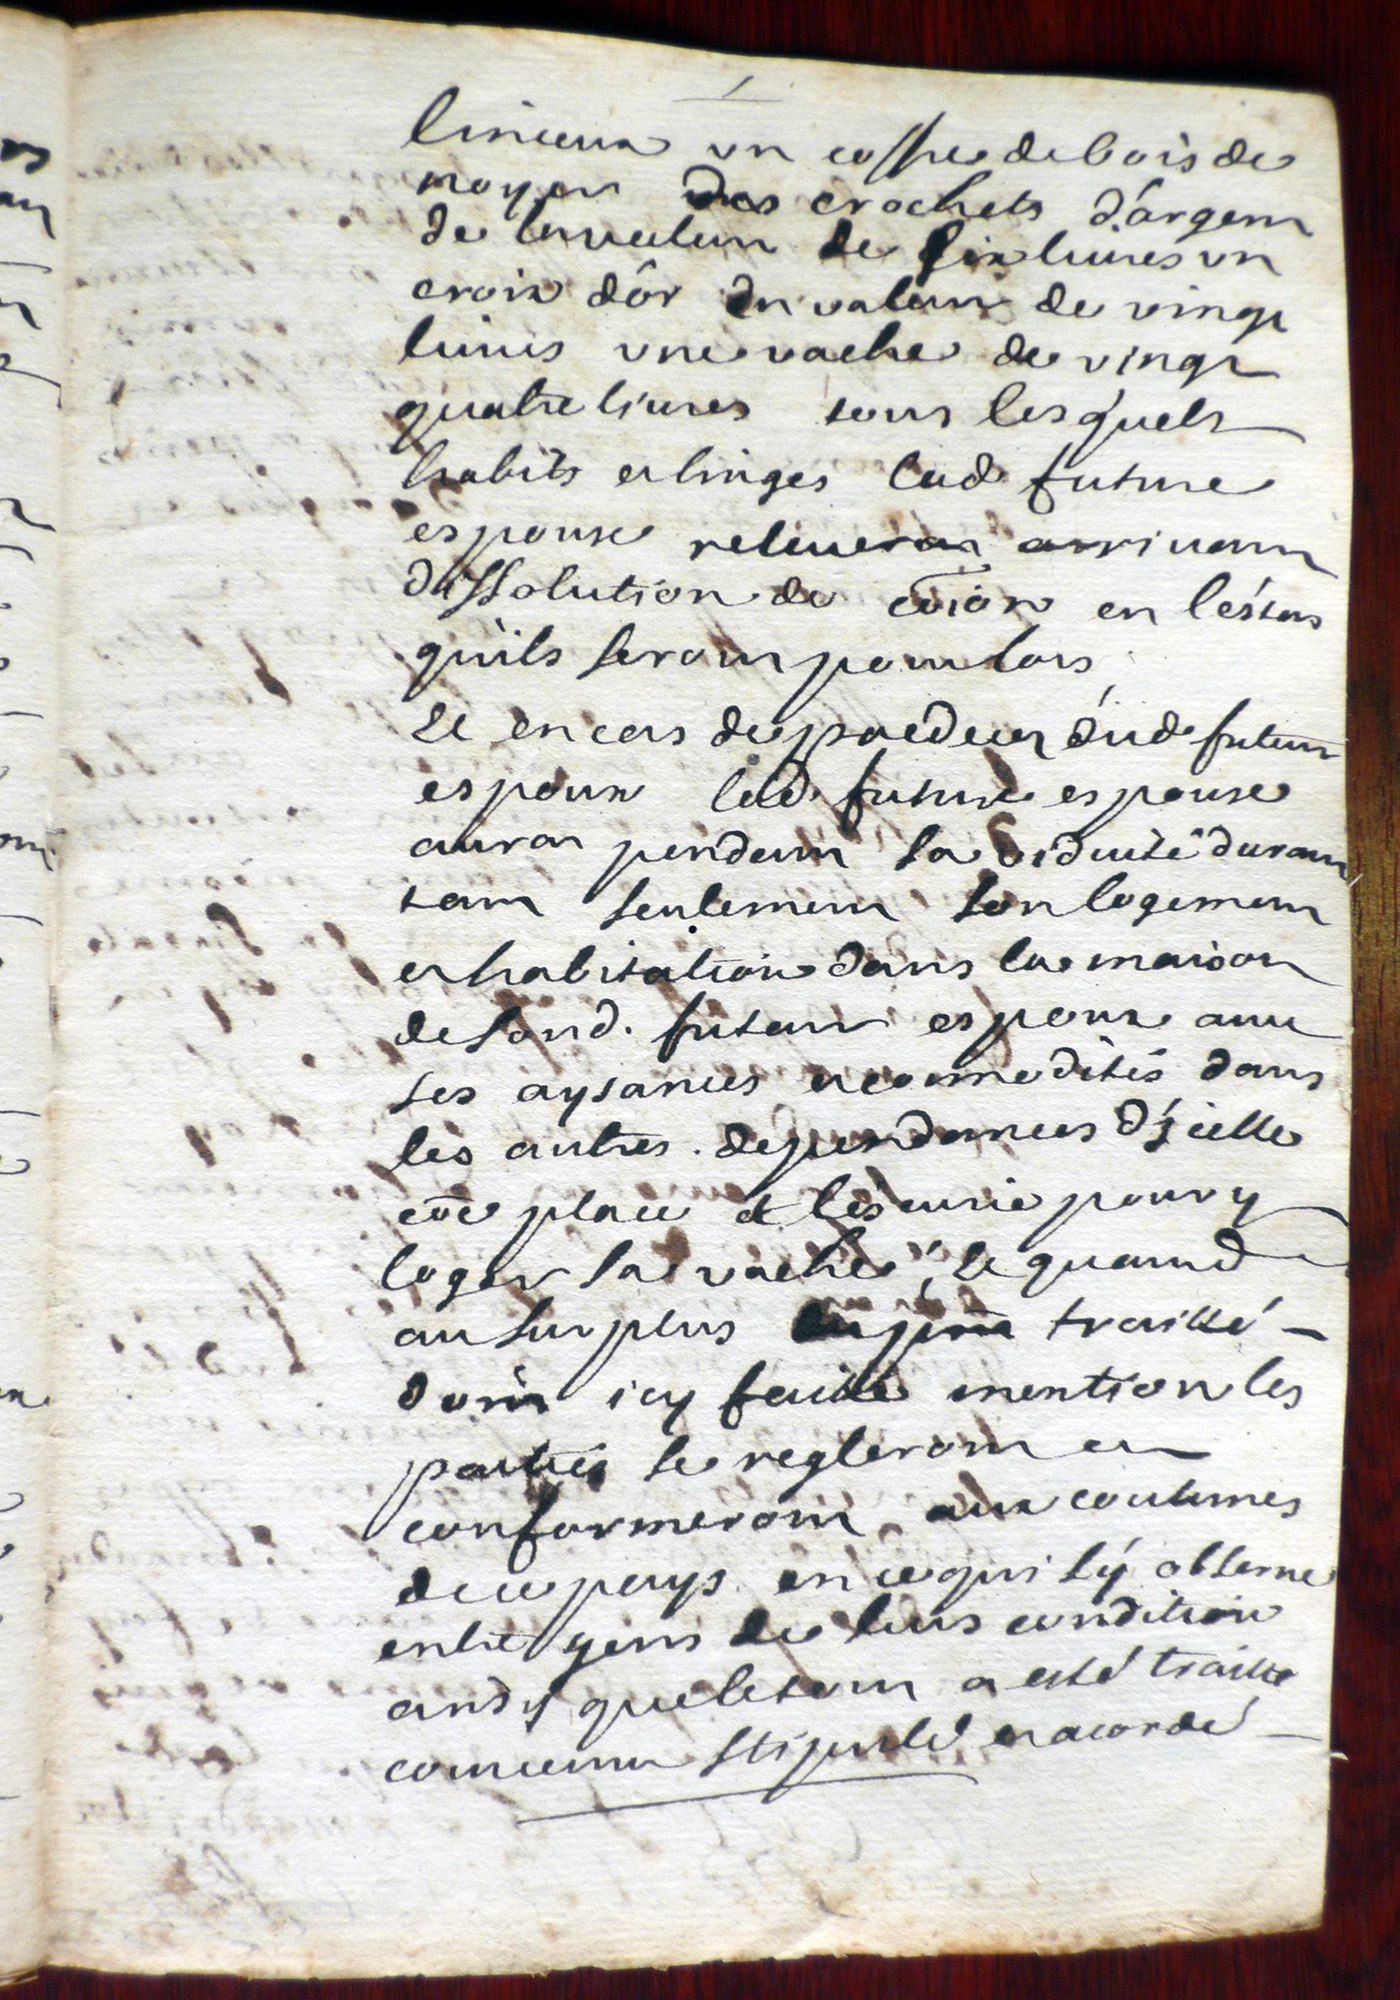 linceux un coffre de bois de
noyer des crochets d'argent
de la valeur de six liures un
croix d'or du valeur de vingt
liures une vache de vingt
quatre liures tous lesquels
habits et linges lad. future
espouse releuerat arriuant
dissolution de coïon en l'estat
qu'ils seront pour lors,
Et en cas de predeces dud. futur
espoux lad. future espouse
aurat pendant sa viduité durant
tant seulement son logement
et habitation dans la maison
de sond. futur espoux auec
ses aysances et commodités dans
les autres dependances d'jcelle
coe place à l'escurie pour y
loger sa vache, Et quand
au surplus du pnt traitté
dont icy faitte mention les
parties se regleront et
conformeront aux coutumes
de ce pays en ce qui s'y obserue
entre gens de leurs condition
ainsy que le tout a esté traitté
conuenu stipulé et acordé